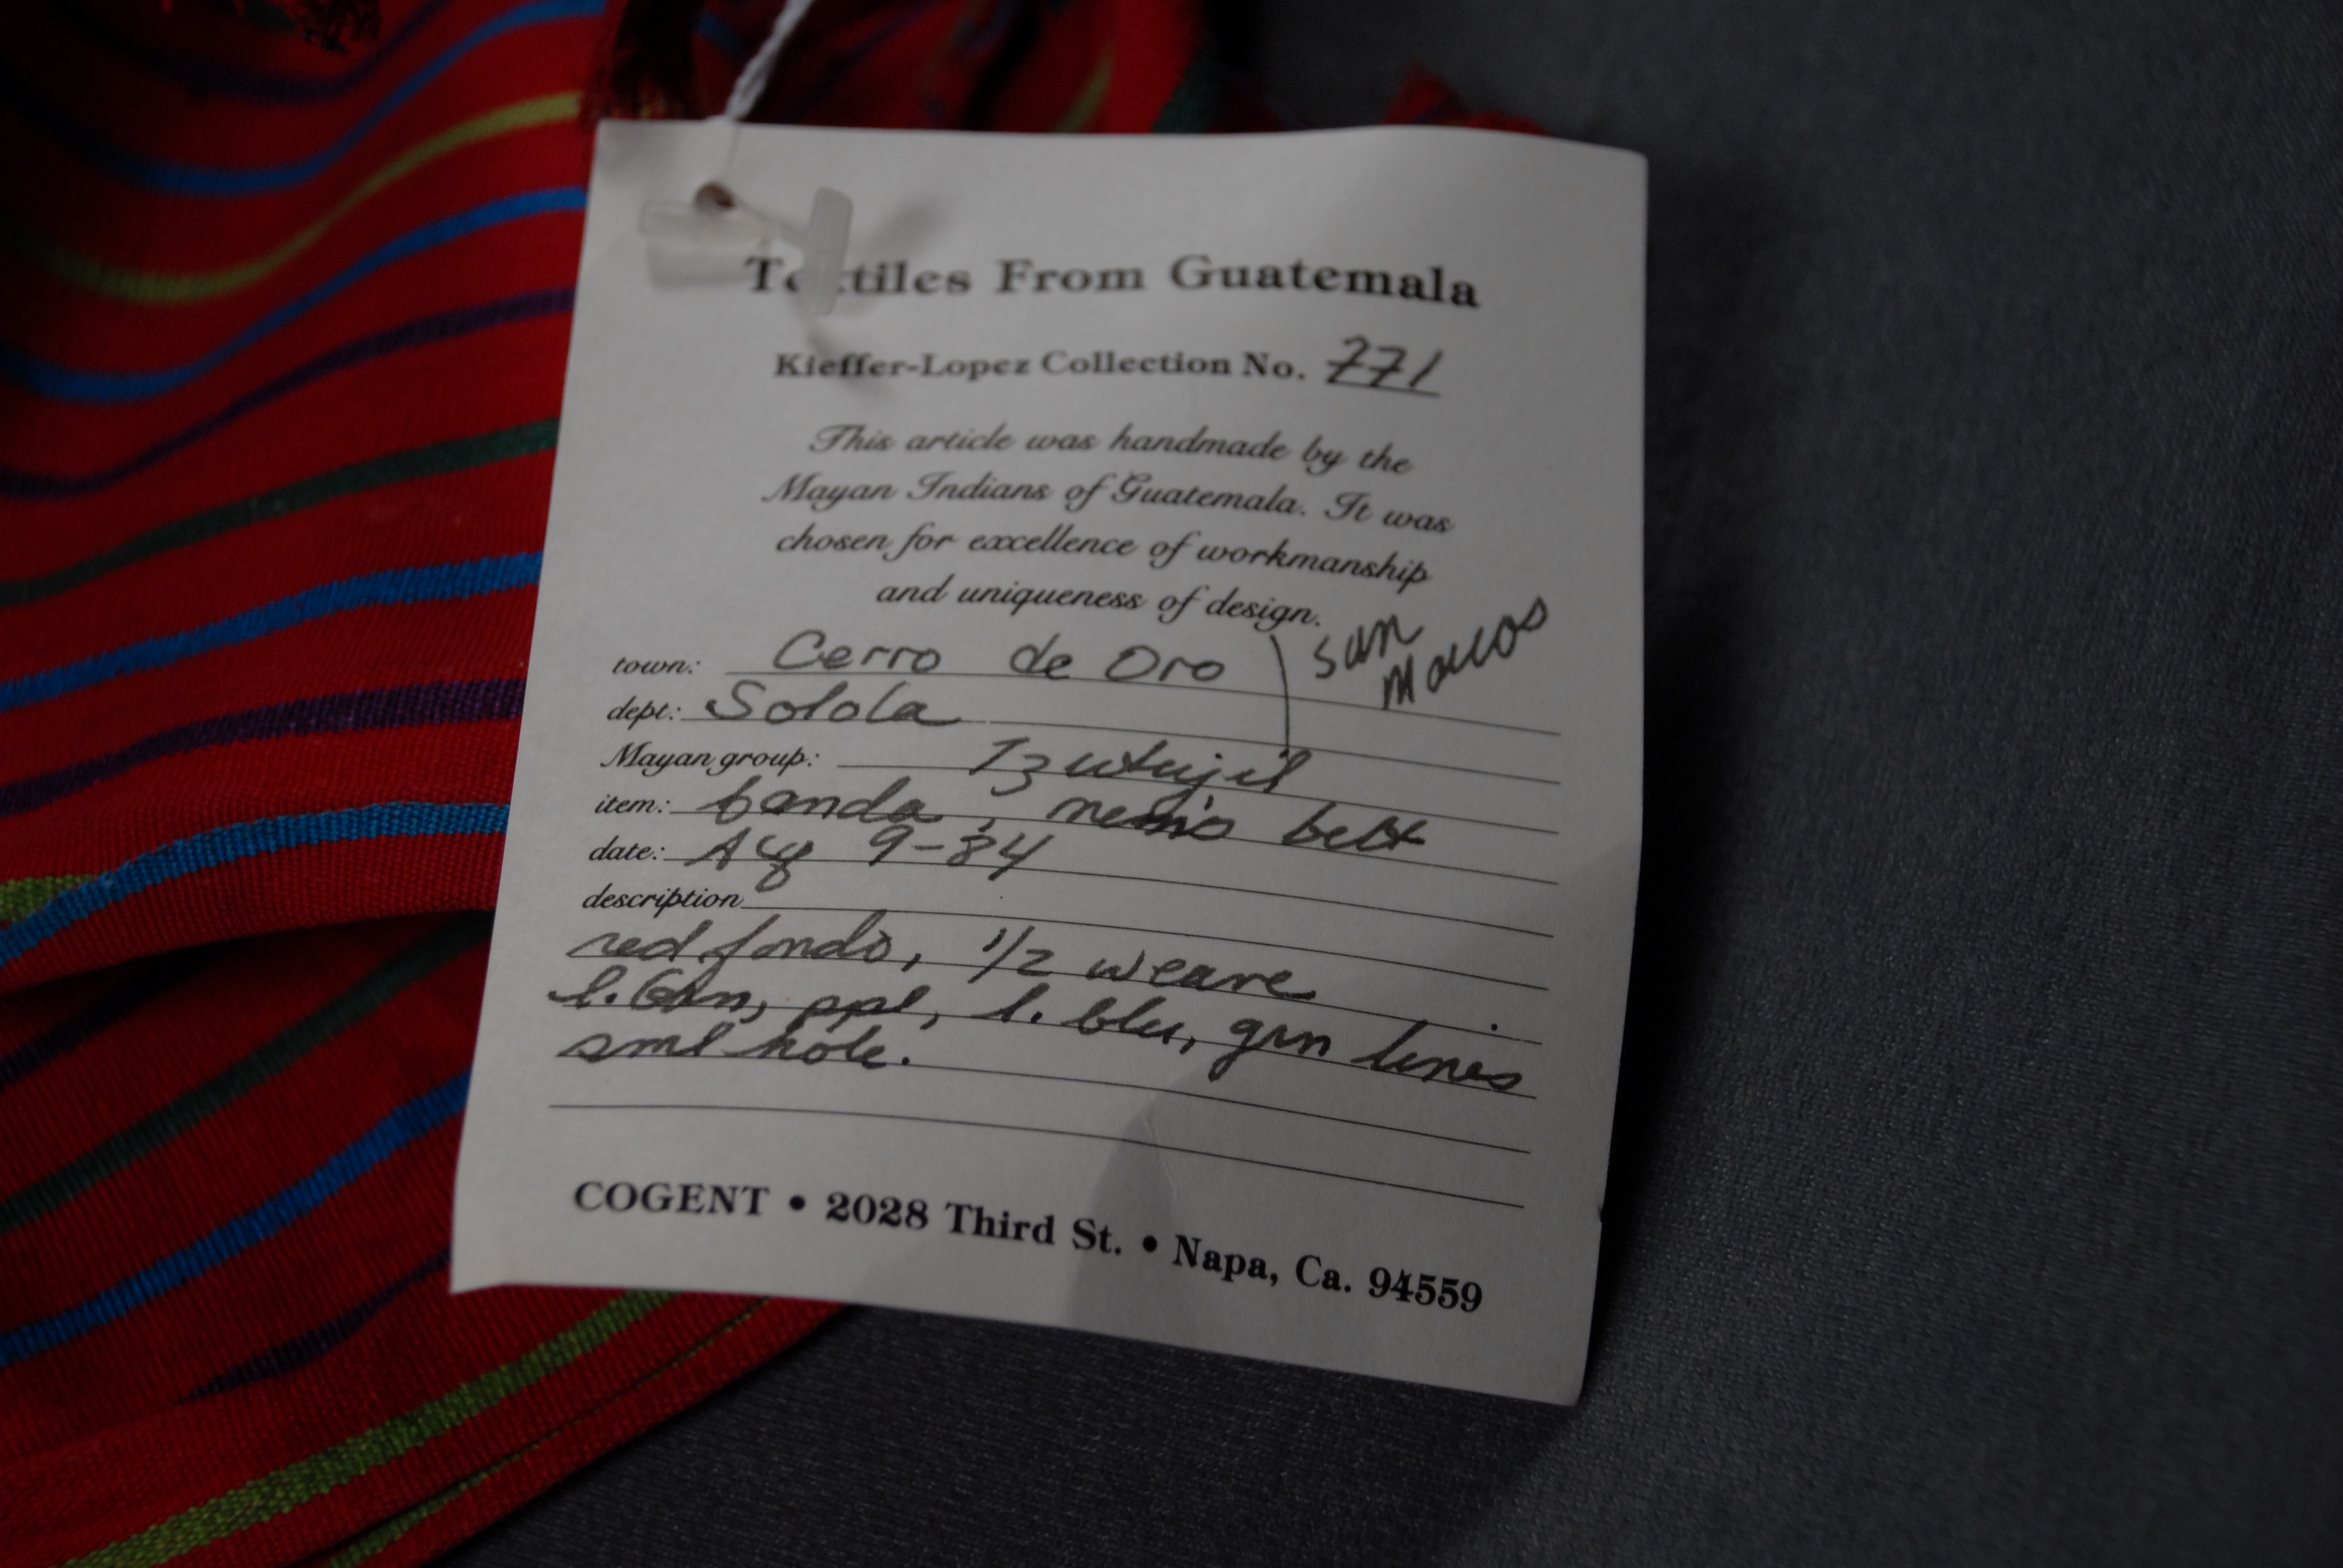 Textiles From Guatemala
Kieffer-Lopez Collection No. 771
This article was handmade by the
Mayan Indians of Guatemala. It was
chosen for excellence of workmanship
and uniqueness of design.
town: Cerro de Oro
San
Marcos
dept: Solola
Mayan group: Tzutujil
item: banda, belt
date: 9-84
description
red fondo, 1/2 weave
l. Grn, ppl, l. blu, grn lines
sml hole.
COGENT • 2028 Third St. • Napa, Ca. 94559